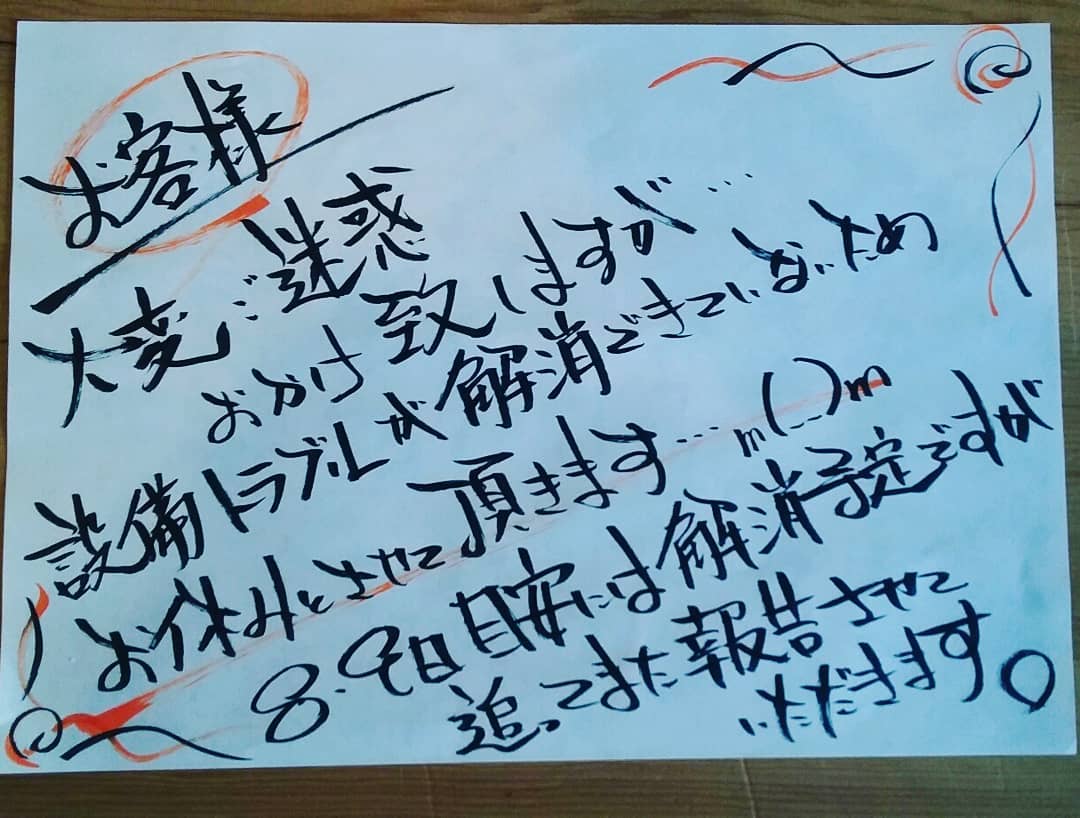 お客様
大変ご迷惑
おかけ致しますが…
設備トラブルが解消できていないため
お休みとさせて頂きます…m(_ _)m
8.9日目安には解消予定ですが
追ってまた報告させて
いただきます。